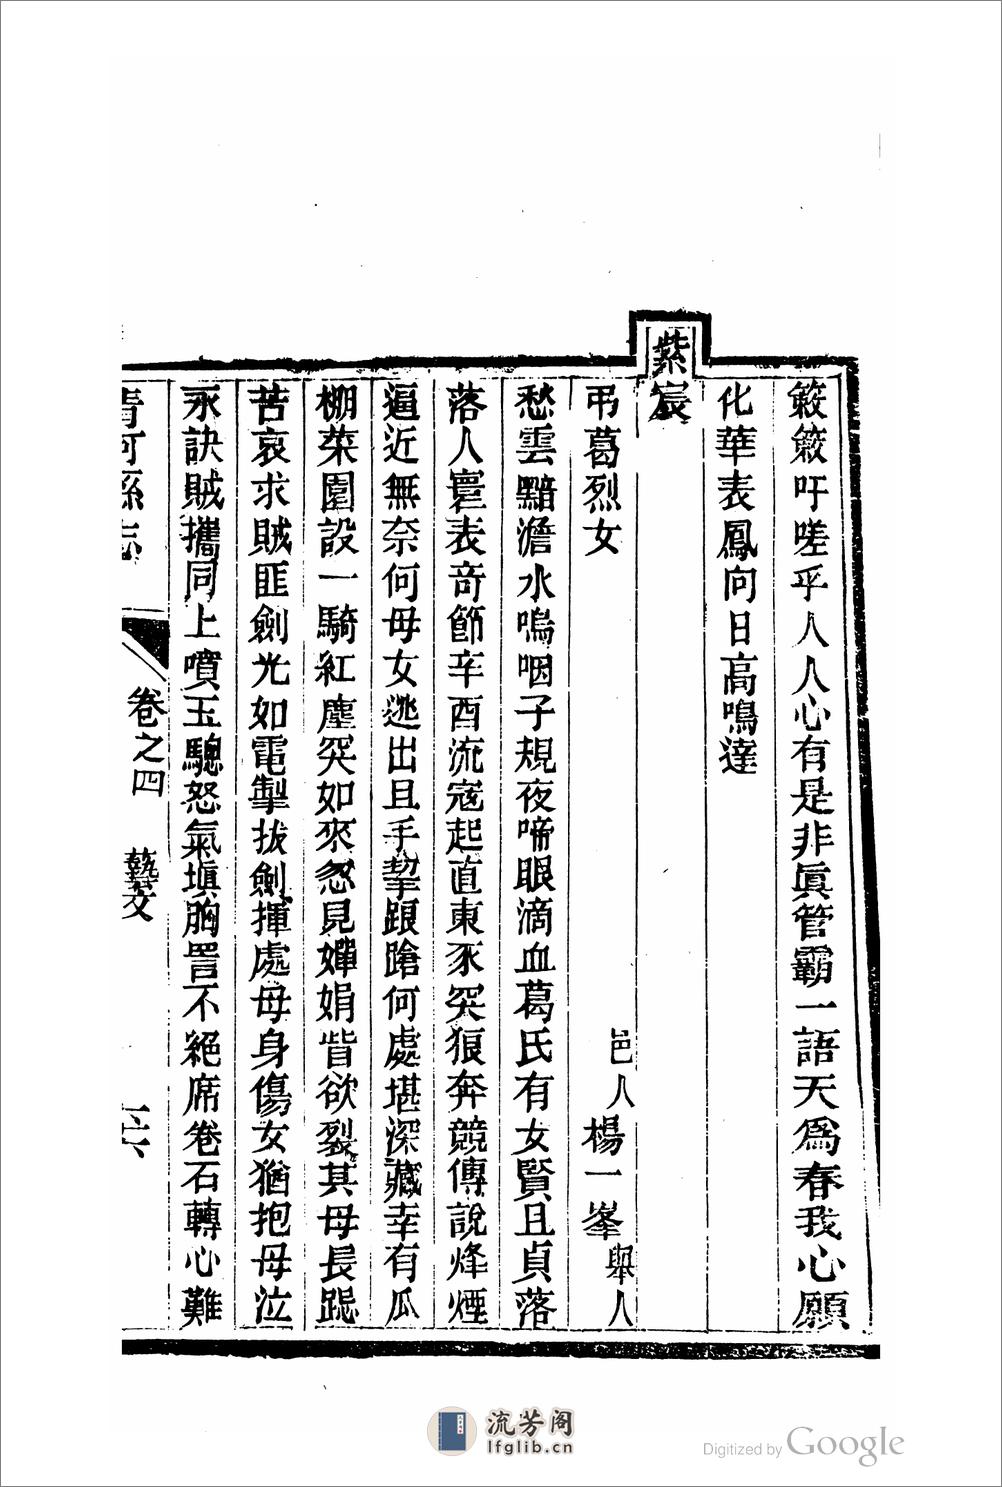 簌簌吁嗟乎人人心有是非眞管霸一語天爲春我心願
化華表鳳向日高鳴達
紫宸
弔葛烈女
邑人楊一峯舉人
愁雲黯澹水嗚咽子規夜啼眼滴血葛氏有女賢且貞落
落人寰表奇節辛酉流寇起直東豕突狼奔競傳說烽煙
逼近無奈何母女逃出且手挈踉蹌何處堪深藏幸有瓜
棚菜園設一騎紅塵突如來忽見嬋娟眥欲裂其母長跽
苦哀求賊匪劍光如電掣拔劍揮處母身傷女猶抱母泣
永訣賊攜同上噴玉驄怒氣塡胸詈不絕席卷石轉心難
青河縣志
卷之四
藝文
流芳阁
lfglib.cn
Digitized by Google